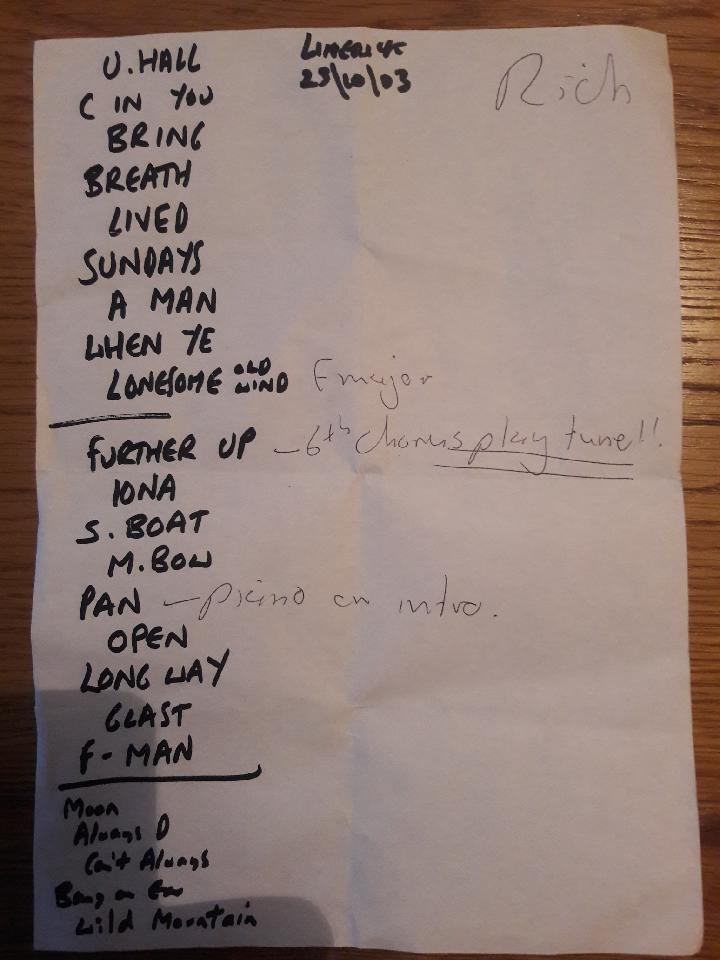 U. HALL
LIMERICK
23/10/03
Rich
C IN YOU
BRING
BREATH
LIVED
SUNDAYS
A MAN
WHEN YE
LONESOME OLD WIND F major
FURTHER UP - 6th chorus play tune!!
IONA
S. BOAT
M. BOW
PAN - piano on intro.
OPEN
LONG WAY
GLAST
F-MAN
Moon
Always D
Can't Always
Bang on
Wild Mountain